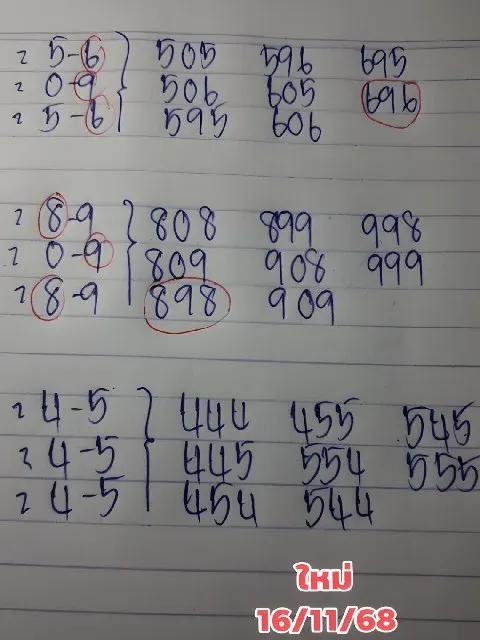 2 5-6 } 505 596 695
2 0-9 506 605 696
2 5-6 595 606
2 8-9 } 808 899 998
2 0-9 809 908 999
2 8-9 898 909
2 4-5 } 444 455 545
2 4-5 445 554 555
2 4-5 454 544
ใหม่
16/11/68